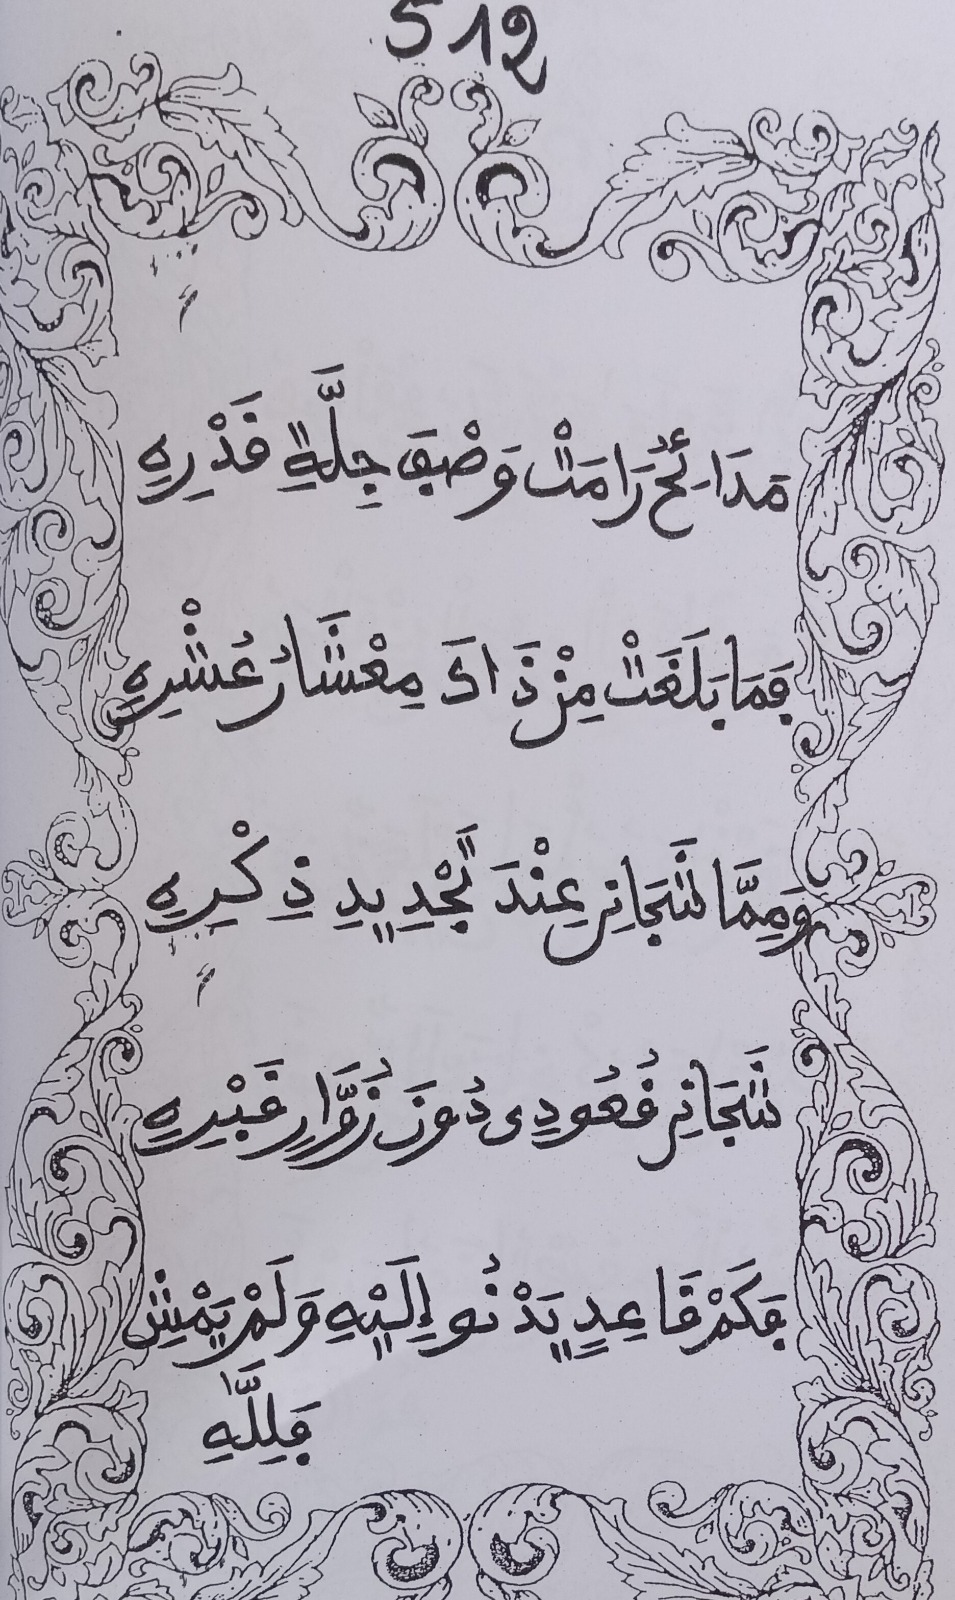 512
مَدَائِحُ رَامَتْ وَصْفَ جِلَّةِ قَدْرِهِ
فَمَا بَلَغَتْ مِنْ ذَاكَ مِعْشَارَ عُشْرِهِ
وَمِمَّا شَجَانِي عِنْدَ تَجْدِيدِ ذِكْرِهِ
شَجَانِي قُعُودِي دُونَ زُوَّارِ قَبْرِهِ
فَكَمْ قَاعِدٍ يَدْنُو إِلَيْهِ وَلَمْ يَمْشِ
فَلِلَّهِ